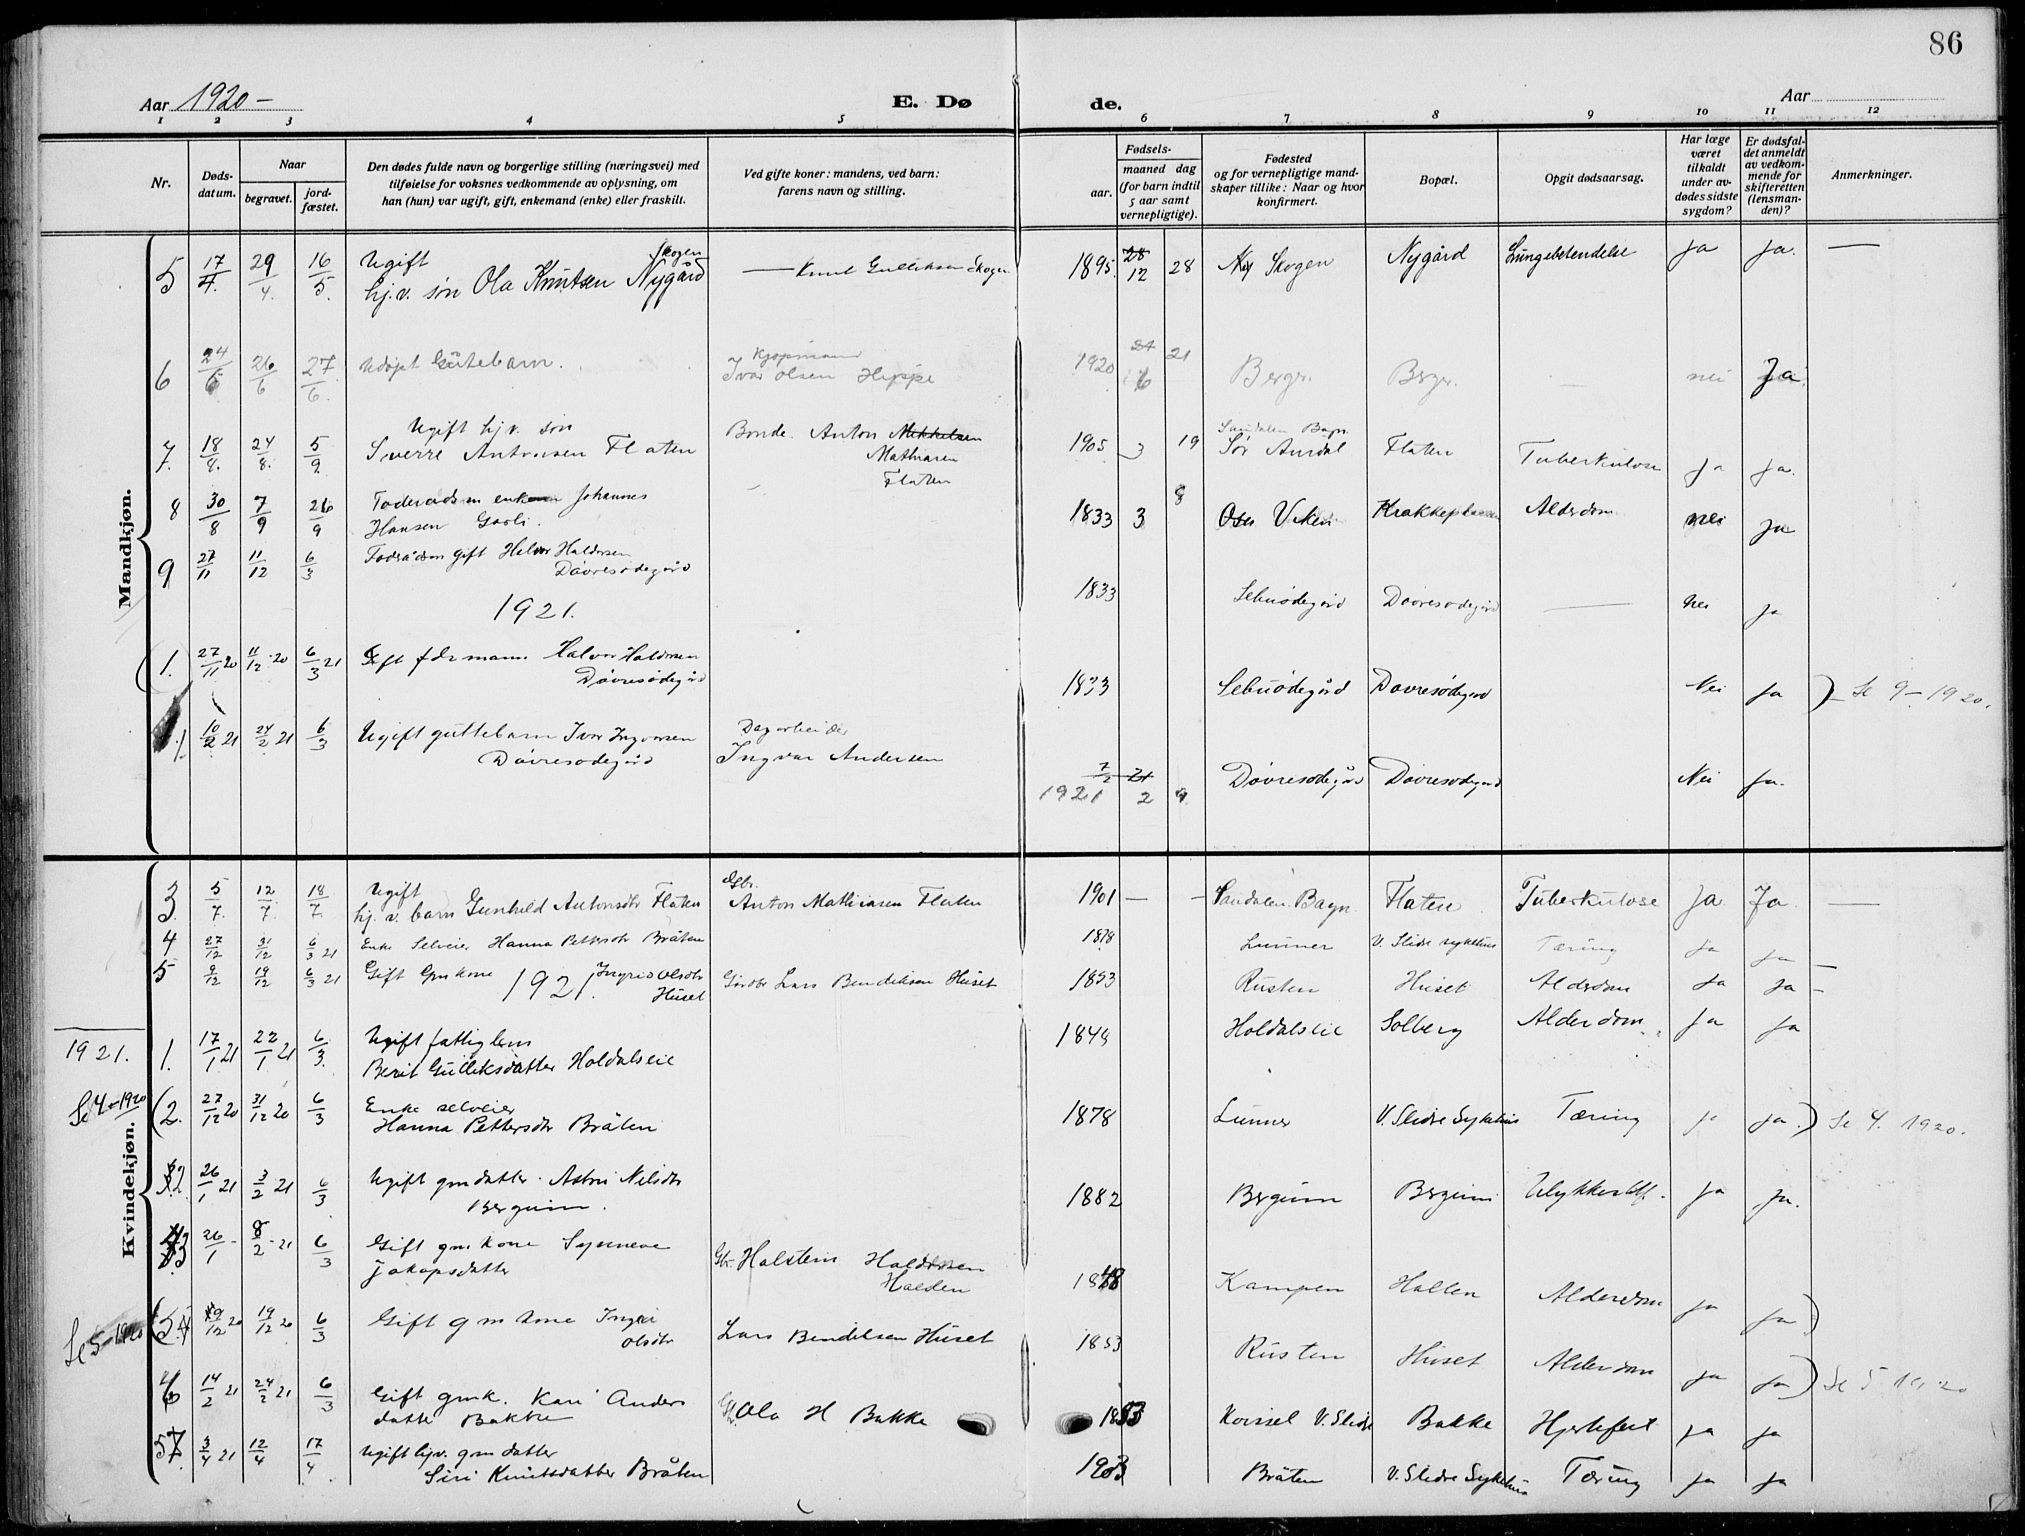 86
Aar 1920 –
E. Dø de.
Aar
1 2 3 4 5 6 7 8 9 10 11 12
Nr.
Døds-
datum.
Naar
begravet.
jord-
fæstet.
Den dødes fulde navn og borgerlige stilling (næringsvei) med
tilføielse for voksnes vedkommende av oplysning, om
han (hun) var ugift, gift, enkemand (enke) eller fraskilt.
Ved gifte koner: mandens, ved barn:
farens navn og stilling.
Fødsels-
aar.
maaned dag
(for barn indtil
5 aar samt
vernepligtige).
Fødested
og for vernepligtige mand-
skaper tillike: Naar og hvor
konfirmert.
Bopæl.
Opgit dødsaarsag.
Har læge
været
tilkaldt
under av-
dødes sidste
sygdom?
Er dødsfal-
det anmeldt
av vedkom-
mende for
skifteretten
(lensman-
den)?
Anmerkninger.
Mandkjøn.
5 17/4. 29/4. 16/5. Ugift Skogen
hj.v. søn Ola Knutsen Nygård — Knut Gulliksen Skogen 1895 28/12 28 Skogen Nygård Lungebetendelse ja ja. —
6 24/6 26/6 27/6. Udøpt Gutebarn. Kjøpmand
Ivar Olsen Hippe 1920 6 21 Berge. Berge. nei Ja
7. 18/8. 24/8. 5/9 Ugift hj.v. søn
Sverre Antonsen Flaten Bonde. Anton Mikkelsen
Mathiasen
Flaten 1905 3 19 Sandalen Bagn.
Sør Aurdal Flaten Tuberkulose ja ja.
8 30/8 7/9 26/9 Johannes
Hansen Gaoli. 1833 3 8 Alderdom nei ja
9 27/11 11/12 6/3 Føderådsm gift Halvor Haldorsen
Døvresødegård 1833 Sebuødegård Døvresødegård — Nei ja
1921.
(1. 27/11 20 11/12 20 6/3 21 Gift Halvor Haldorsen
Døvresødegård 1833 Sebuødegård Døvresødegård Nei ja ) Se 9 – 1920.
1 10/2 21 24/2 21 6/3 Ugift guttebarn Ivar Ingvarsen
Døvresødegård Dagarbeider
Ingvar Andersen 7/2 21
1921 2 9 Døvresødegård Døvresødegård Nei ja.
Kvindekjøn.
3. 5/7. 12/7. 18/7. Ugift
hj.v. barn Gunhild Antonsdtr Flaten Gbr.
Anton Mathiasen Flaten 1901 — — Sandalen. Bagn. Flaten Tuberkulose Ja Ja —
4 27/12 31/12 6/3 21 Enke Selveier Hanna Pettersdtr Bråten 1878 Lunner V. Slidre sykehus Tæring ja ja —
5 9/12 19/12 6/3 21 Gift Gmkone Ingrid Olsdtr
Huset Lars Bendiksen Huset 1853 Rusten Huset Alderdom ja ja –
1921.
1921.
1. 17/1 21 22/1 21 6/3. Ugift fattiglem
Berit Gulleiksdatter Holdalseie Holdalseie Solberg Alderdom ja ja
Se 4 – 1920 (2. 27/12 20 31/12 20 6/3 Enke selveier
Hanna Pettersdtr Bråten 1878 Lunner V. Slidre Sykehus Tæring ja ja ) Se 4. 1920.
2 26/1 21 3/2 21 6/3 Ugift gmdatter. Astri Nilsdtr
Bergum. 1882 Bergum Bergum Ulykkestilf. ja ja.
3 26/1 8/2 21 6/3 Gift gmkone Synneve
Jakopsdatter Gbr Halstein Haldorsen
Halden 1848 Kampen Hallen Alderdom ja ja )
Se 5 – 1920 (5 9/12 20 19/12 20 6/3 Gift gm kone Ingri
Olsdtr Lars Bendiksen Huset 1853 Rusten Huset Alderdom ja ja ) Se 5. 1920
14/2 21 24/2 21 6/3 Gift gmk. Kari Anders
datter Bakke Gbr. Ola H Bakke 1853 V. Slidre Bakke Hjertefeil ja ja
5 3/4 21 12/4 17/4 Ugift hjv. gmdatter
Siri Knutsdatter Bråten 1903 Bråten V. Slidre Sykehus Tæring ja ja